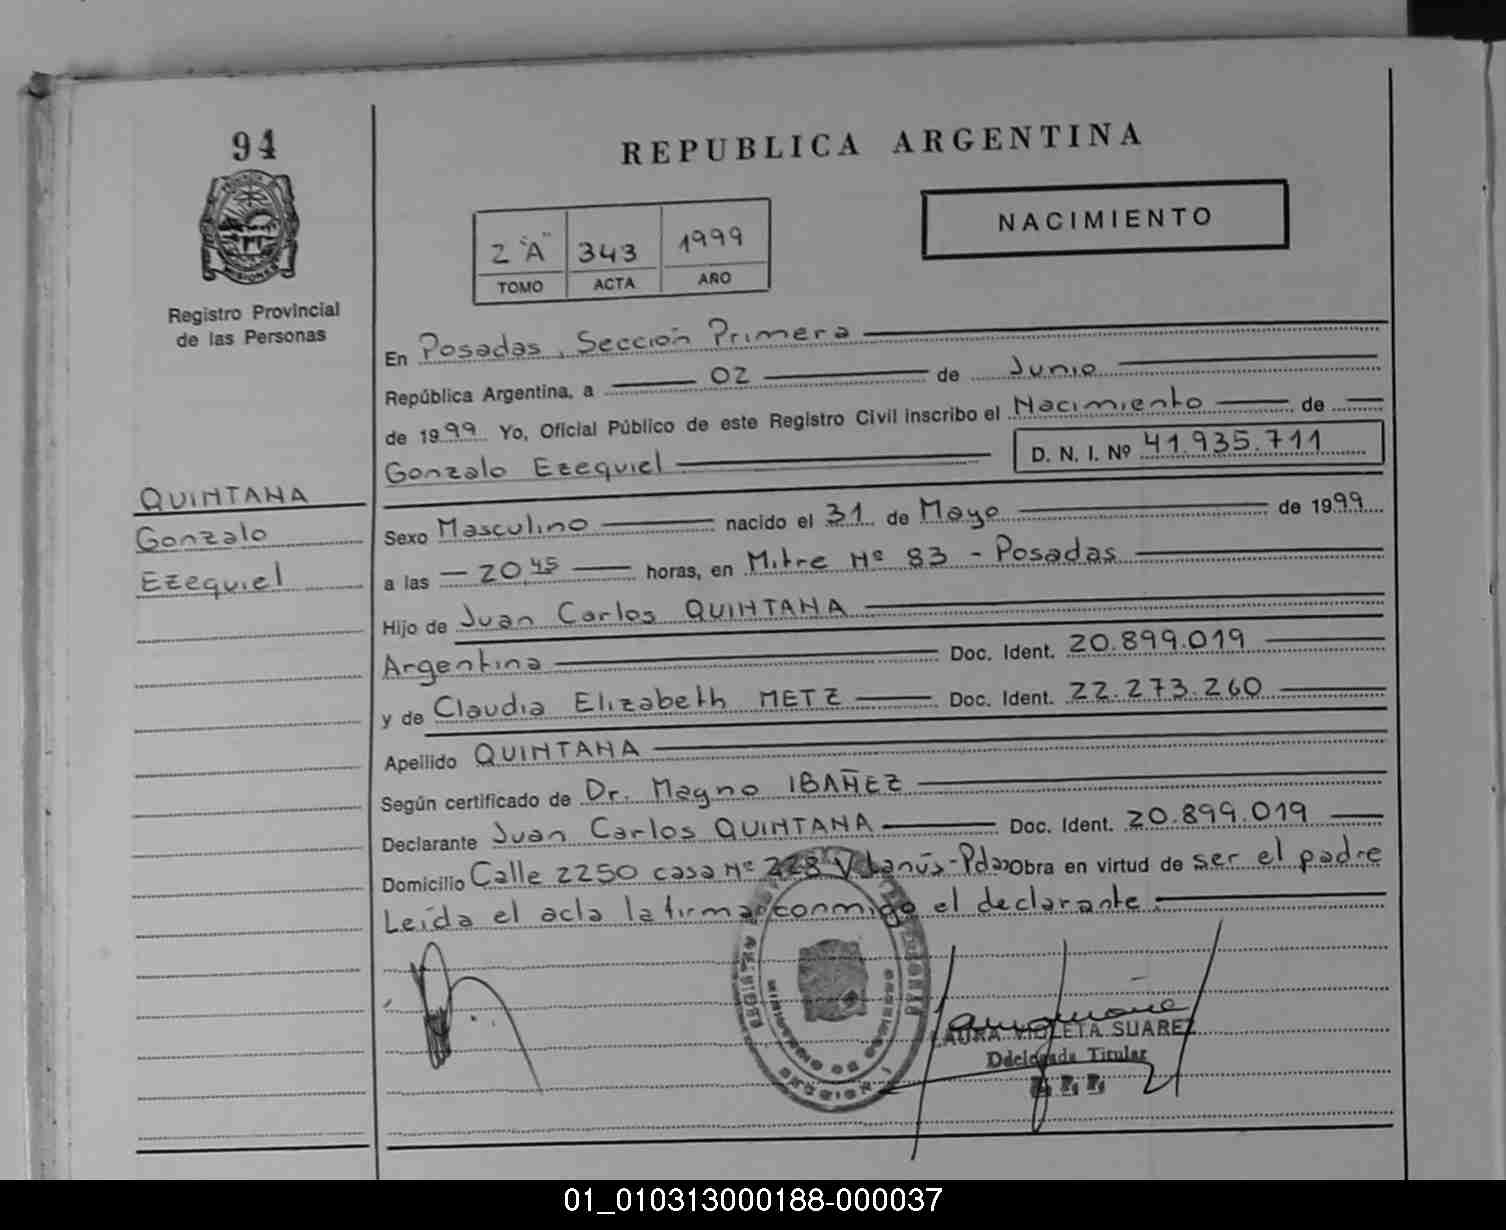 94
REPUBLICA ARGENTINA
NACIMIENTO
2 "A" 343 1999
TOMO ACTA AÑO
MISIONES
Registro Provincial
de las Personas
En Posadas, Sección Primera
República Argentina, a 02 de Junio
de 1999 Yo, Oficial Público de este Registro Civil inscribo el Nacimiento de
Gonzalo Ezequiel D. N. I. Nº 41.935.711
QUINTANA
Gonzalo
Ezequiel
Sexo Masculino nacido el 31 de Mayo de 1999
a las 20,45 horas, en Mitre Nº 83 - Posadas
Hijo de Juan Carlos QUINTANA
Argentina Doc. Ident. 20.899.019
y de Claudia Elizabeth METZ Doc. Ident. 22.273.260
Apellido QUINTANA
Según certificado de Dr. Magno IBAÑEZ
Declarante Juan Carlos QUINTANA Doc. Ident. 20.899.019
Domicilio Calle 2250 casa Nº 228 V. Lanús-Pdas Obra en virtud de ser el padre
Leída el acta la firma conmigo el declarante.
LAURA VIOLETA SUAREZ
Delegada Titular
R. P. P.
01_010313000188-000037